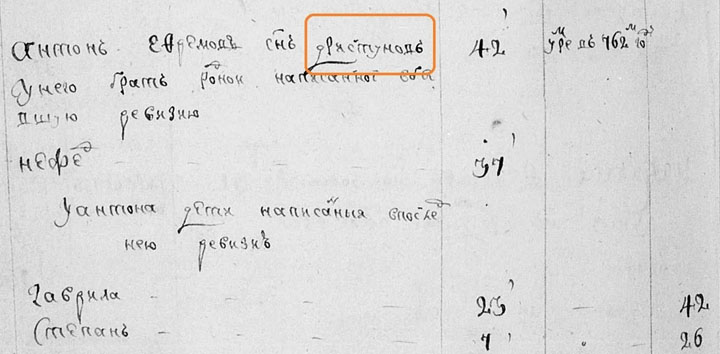 антонъ ефремовъ снъ 42 умре въ 762м го
у него братъ родной написанной въ бы
вшую ревизию
нефед - - - 37
у антона дети написаныя в после
нею ревизиъ
гаврила - - - 23 - 42
степанъ - - - 7 - 26